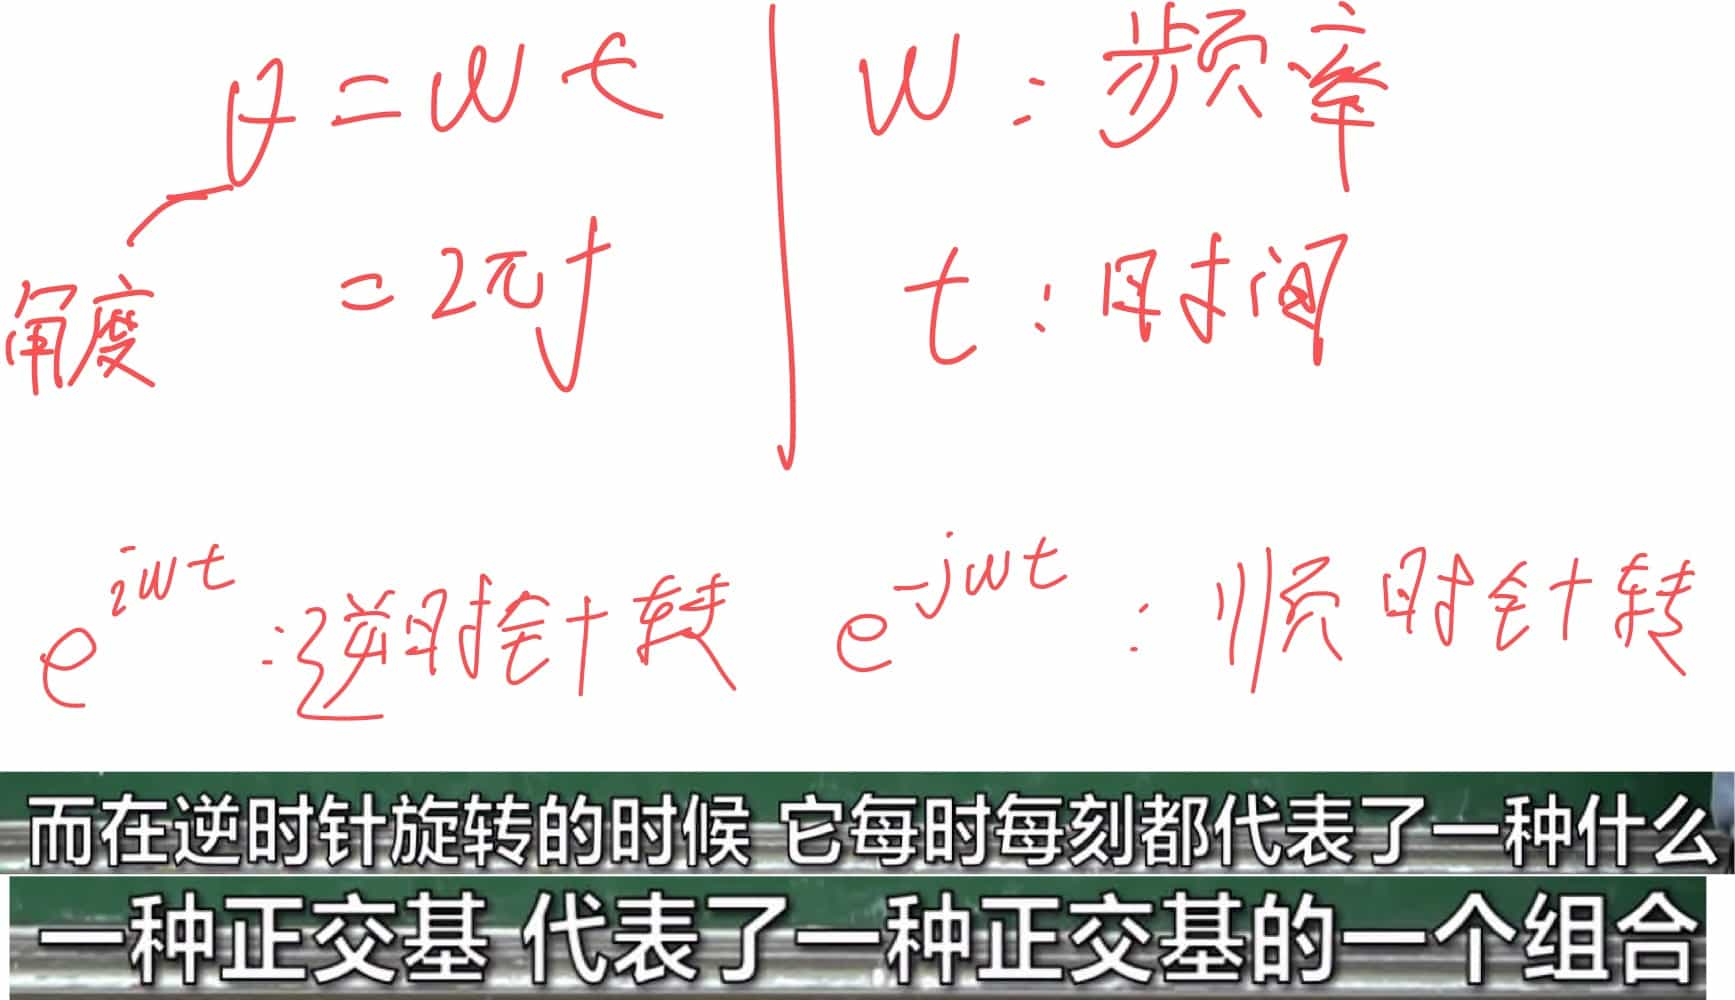 θ = wt
w : 频率
角度
= 2πf
t : 时间
e^{iwt} : 逆时针转
e^{-jwt} : 顺时针转
而在逆时针旋转的时候 它每时每刻都代表了一种什么
一种正交基 代表了一种正交基的一个组合